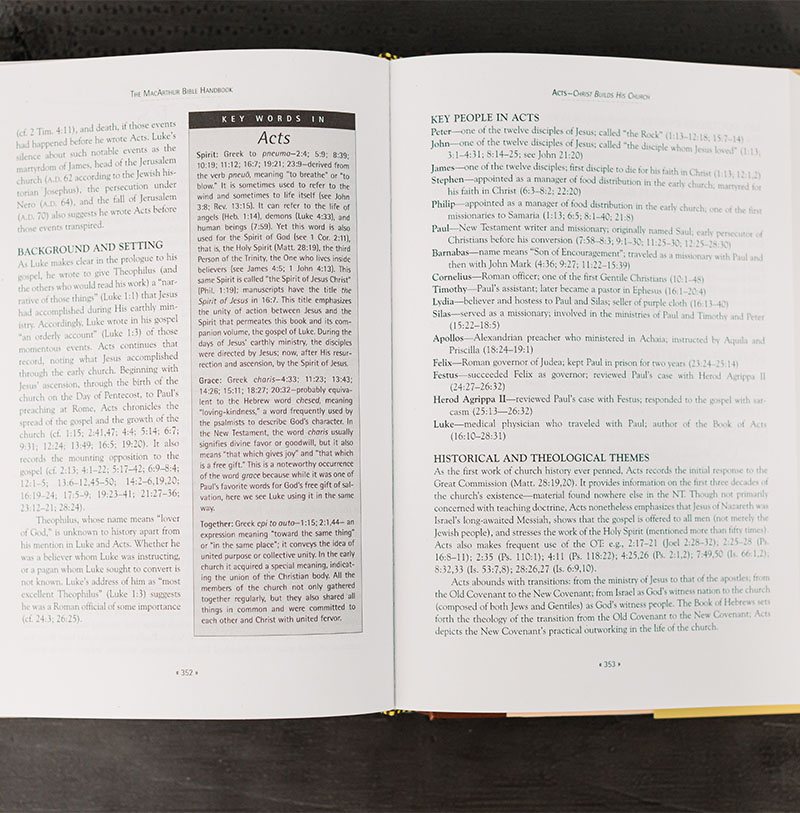 THE MACARTHUR BIBLE HANDBOOK
(cf. 2 Tim. 4:11), and death, if those events
had happened before he wrote Acts. Luke's
silence about such notable events as the
martyrdom of James, head of the Jerusalem
church (A.D. 62 according to the Jewish his-
torian Josephus), the persecution under
Nero (A.D. 64), and the fall of Jerusalem
(A.D. 70) also suggests he wrote Acts before
those events transpired.
BACKGROUND AND SETTING
As Luke makes clear in the prologue to his
gospel, he wrote to give Theophilus (and
the others who would read his work) a "nar-
rative of those things" (Luke 1:1) that Jesus
had accomplished during His earthly min-
istry. Accordingly, Luke wrote in his gospel
"an orderly account" (Luke 1:3) of those
momentous events. Acts continues that
record, noting what Jesus accomplished
through the early church. Beginning with
Jesus' ascension, through the birth of the
church on the Day of Pentecost, to Paul's
preaching at Rome, Acts chronicles the
spread of the gospel and the growth of the
church (cf. 1:15; 2:41,47; 4:4; 5:14; 6:7;
9:31; 12:24; 13:49; 16:5; 19:20). It also
records the mounting opposition to the
gospel (cf. 2:13; 4:1–22; 5:17–42; 6:9–8:4;
12:1–5; 13:6–12,45–50; 14:2–6,19,20;
16:19–24; 17:5–9; 19:23–41; 21:27–36;
23:12–21; 28:24).
Theophilus, whose name means "lover
of God," is unknown to history apart from
his mention in Luke and Acts. Whether he
was a believer whom Luke was instructing,
or a pagan whom Luke sought to convert is
not known. Luke's address of him as "most
excellent Theophilus" (Luke 1:3) suggests
he was a Roman official of some importance
(cf. 24:3; 26:25).
KEY WORDS IN
Acts
Spirit: Greek to pneuma—2:4; 5:9; 8:39;
10:19; 11:12; 16:7; 19:21; 23:9—derived from the
verb pneuō, meaning "to breathe" or "to
blow." It is sometimes used to refer to the
wind and sometimes to life itself (see John
3:8; Rev. 13:15). It can refer to the life of
angels (Heb. 1:14), demons (Luke 4:33), and
human beings (7:59). Yet this word is also
used for the Spirit of God (see 1 Cor. 2:11),
that is, the Holy Spirit (Matt. 28:19), the third
Person of the Trinity, the One who lives inside
believers (see James 4:5; 1 John 4:13). This
same Spirit is called "the Spirit of Jesus Christ"
(Phil. 1:19); manuscripts have the title the
Spirit of Jesus in 16:7. This title emphasizes
the unity of action between Jesus and the
Spirit that permeates this book and its com-
panion volume, the gospel of Luke. During the
days of Jesus' earthly ministry, the disciples
were directed by Jesus; now, after His resur-
rection and ascension, by the Spirit of Jesus.
Grace: Greek charis—4:33; 11:23; 13:43;
14:26; 15:11; 18:27; 20:32—probably equiva-
lent to the Hebrew word chesed, meaning
"loving-kindness," a word frequently used by
the psalmists to describe God's character. In
the New Testament, the word charis usually
signifies divine favor or goodwill, but it also
means "that which gives joy" and "that which
is a free gift." This is a noteworthy occurrence
of the word grace because while it was one of
Paul's favorite words for God's free gift of sal-
vation, here we see Luke using it in the same
way.
Together: Greek epi to auto—1:15; 2:1,44—an
expression meaning "toward the same thing"
or "in the same place"; it conveys the idea of
united purpose or collective unity. In the early
church it acquired a special meaning, indicat-
ing the union of the Christian body. All the
members of the church not only gathered
together regularly, but they also shared all
things in common and were committed to
each other and Christ with united fervor.
352
ACTS—CHRIST BUILDS HIS CHURCH
KEY PEOPLE IN ACTS
Peter—one of the twelve disciples of Jesus; called "the Rock" (1:13–12:18; 15:7–14)
John—one of the twelve disciples of Jesus; called "the disciple whom Jesus loved" (1:13;
3:1–4:31; 8:14–25; see John 21:20)
James—one of the twelve disciples; first disciple to die for his faith in Christ (1:13; 12:1,2)
Stephen—appointed as a manager of food distribution in the early church; martyred for
his faith in Christ (6:3–8:2; 22:20)
Philip—appointed as a manager of food distribution in the early church; one of the first
missionaries to Samaria (1:13; 6:5; 8:1–40; 21:8)
Paul—New Testament writer and missionary; originally named Saul; early persecutor of
Christians before his conversion (7:58–8:3; 9:1–30; 11:25–30; 12:25–28:30)
Barnabas—name means "Son of Encouragement"; traveled as a missionary with Paul and
then with John Mark (4:36; 9:27; 11:22–15:39)
Cornelius—Roman officer; one of the first Gentile Christians (10:1–48)
Timothy—Paul's assistant; later became a pastor in Ephesus (16:1–20:4)
Lydia—believer and hostess to Paul and Silas; seller of purple cloth (16:13–40)
Silas—served as a missionary; involved in the ministries of Paul and Timothy and Peter
(15:22–18:5)
Apollos—Alexandrian preacher who ministered in Achaia; instructed by Aquila and
Priscilla (18:24–19:1)
Felix—Roman governor of Judea; kept Paul in prison for two years (23:24–25:14)
Festus—succeeded Felix as governor; reviewed Paul's case with Herod Agrippa II
(24:27–26:32)
Herod Agrippa II—reviewed Paul's case with Festus; responded to the gospel with sar-
casm (25:13—26:32)
Luke—medical physician who traveled with Paul; author of the Book of Acts
(16:10–28:31)
HISTORICAL AND THEOLOGICAL THEMES
As the first work of church history ever penned, Acts records the initial response to the
Great Commission (Matt. 28:19,20). It provides information on the first three decades of
the church's existence—material found nowhere else in the NT. Though not primarily
concerned with teaching doctrine, Acts nonetheless emphasizes that Jesus of Nazareth was
Israel's long-awaited Messiah, shows that the gospel is offered to all men (not merely the
Jewish people), and stresses the work of the Holy Spirit (mentioned more than fifty times).
Acts also makes frequent use of the OT: e.g., 2:17–21 (Joel 2:28–32); 2:25–28 (Ps.
16:8–11); 2:35 (Ps. 110:1); 4:11 (Ps. 118:22); 4:25,26 (Ps. 2:1,2); 7:49,50 (Is. 66:1,2);
8:32,33 (Is. 53:7,8); 28:26,27 (Is. 6:9,10).
Acts abounds with transitions: from the ministry of Jesus to that of the apostles; from
the Old Covenant to the New Covenant; from Israel as God's witness nation to the church
(composed of both Jews and Gentiles) as God's witness people. The Book of Hebrews sets
forth the theology of the transition from the Old Covenant to the New Covenant; Acts
depicts the New Covenant's practical outworking in the life of the church.
353